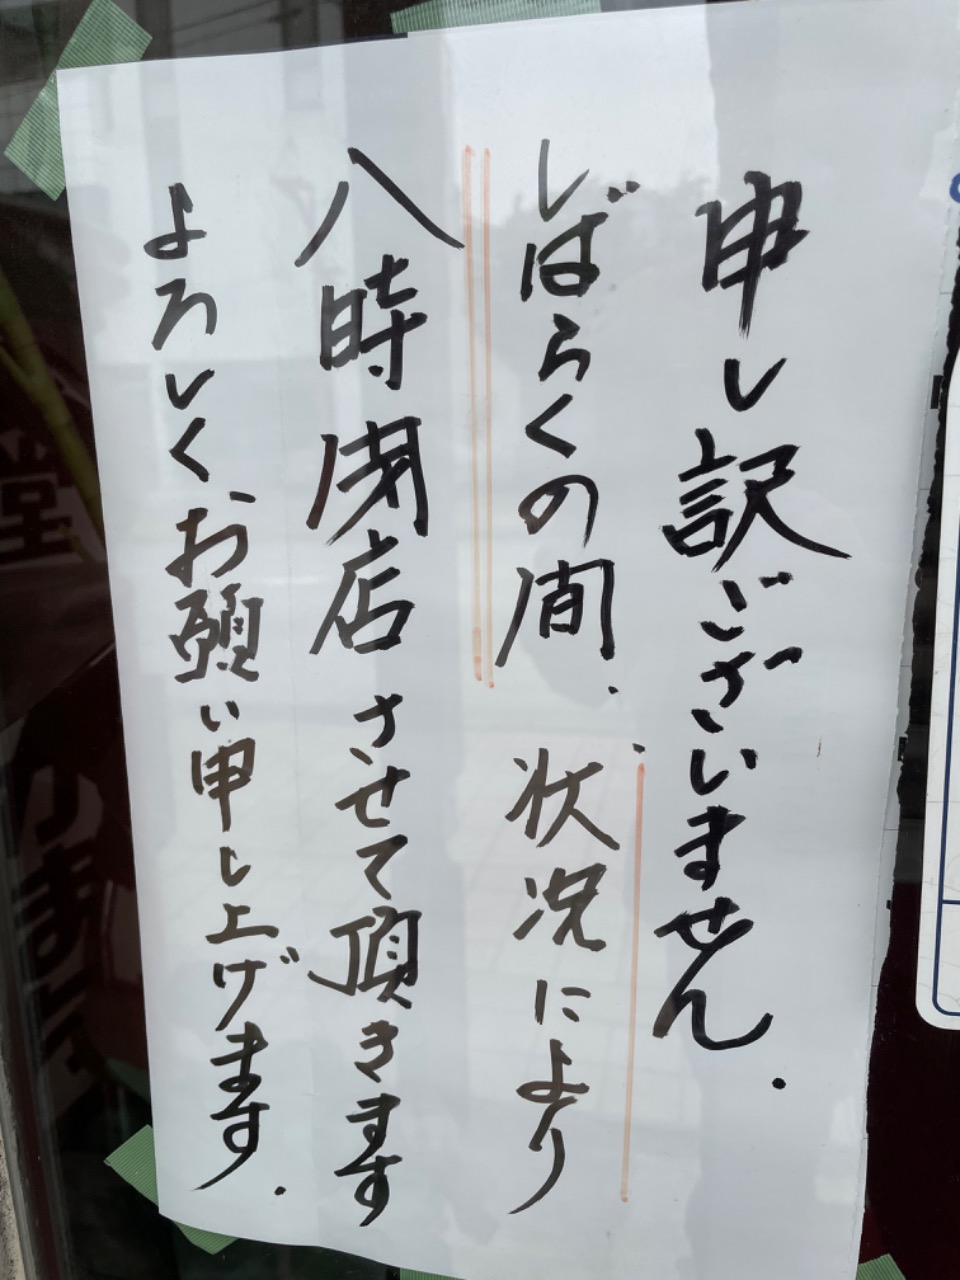 申し訳ございません.
しばらくの間、状況により
八時閉店させて頂きます
よろしくお願い申し上げます.
堂